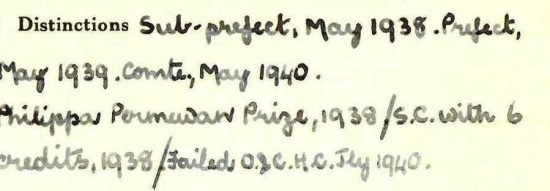 Distinctions Sub-prefect, May 1938. Prefect,
May 1939. Comte., May 1940.
Philippa Permewan Prize, 1938/S.C. with 6
credits, 1938/Failed O.&C.H.C. Jly 1940.